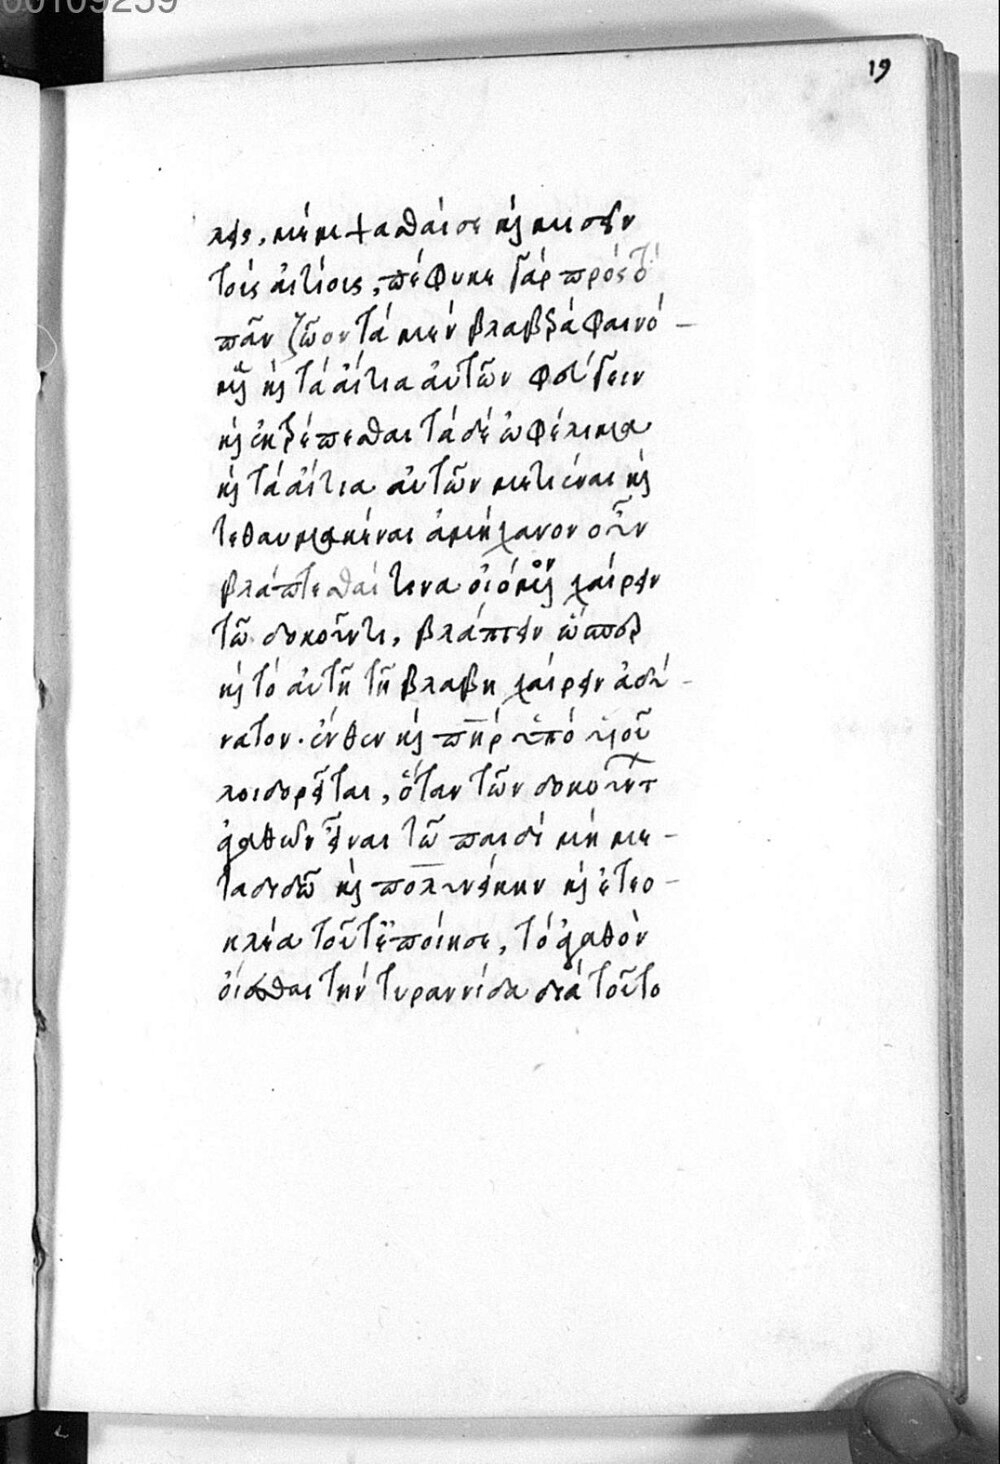 19
λει, μέμψασθαί σε καὶ μισεῖν
τοῖς αἰτίοις, πέφυκε γὰρ πρὸς τό
πᾶν ζῶον τὰ μὲν βλαβερὰ φαινό-
μενα καὶ τὰ αἴτια αὐτῶν φεύγειν
καὶ ἐκτρέπεσθαι τὰ δὲ ὠφέλιμα
καὶ τὰ αἴτια αὐτῶν μετιέναι καὶ
τεθαυμακέναι ἀμήχανον οὖν
βλάπτεσθαί τινα οἰόμενον χαίρειν
τῷ δοκοῦντι βλάπτειν ὥσπερ
καὶ τὸ αὐτῇ τῇ βλάβῃ χαίρειν ἀδύ-
νατον. ἔνθεν καὶ πατὴρ ὑπὸ υἱοῦ
λοιδορεῖται, ὅταν τῶν δοκούντων
ἀγαθῶν εἶναι τῷ παιδὶ μὴ με-
ταδιδῷ καὶ πολυνείκην καὶ ἐτεο-
κλέα τοῦτ' ἐποίησε, τὸ ἀγαθὸν
οἴεσθαι τὴν τυραννίδα διὰ τοῦτο